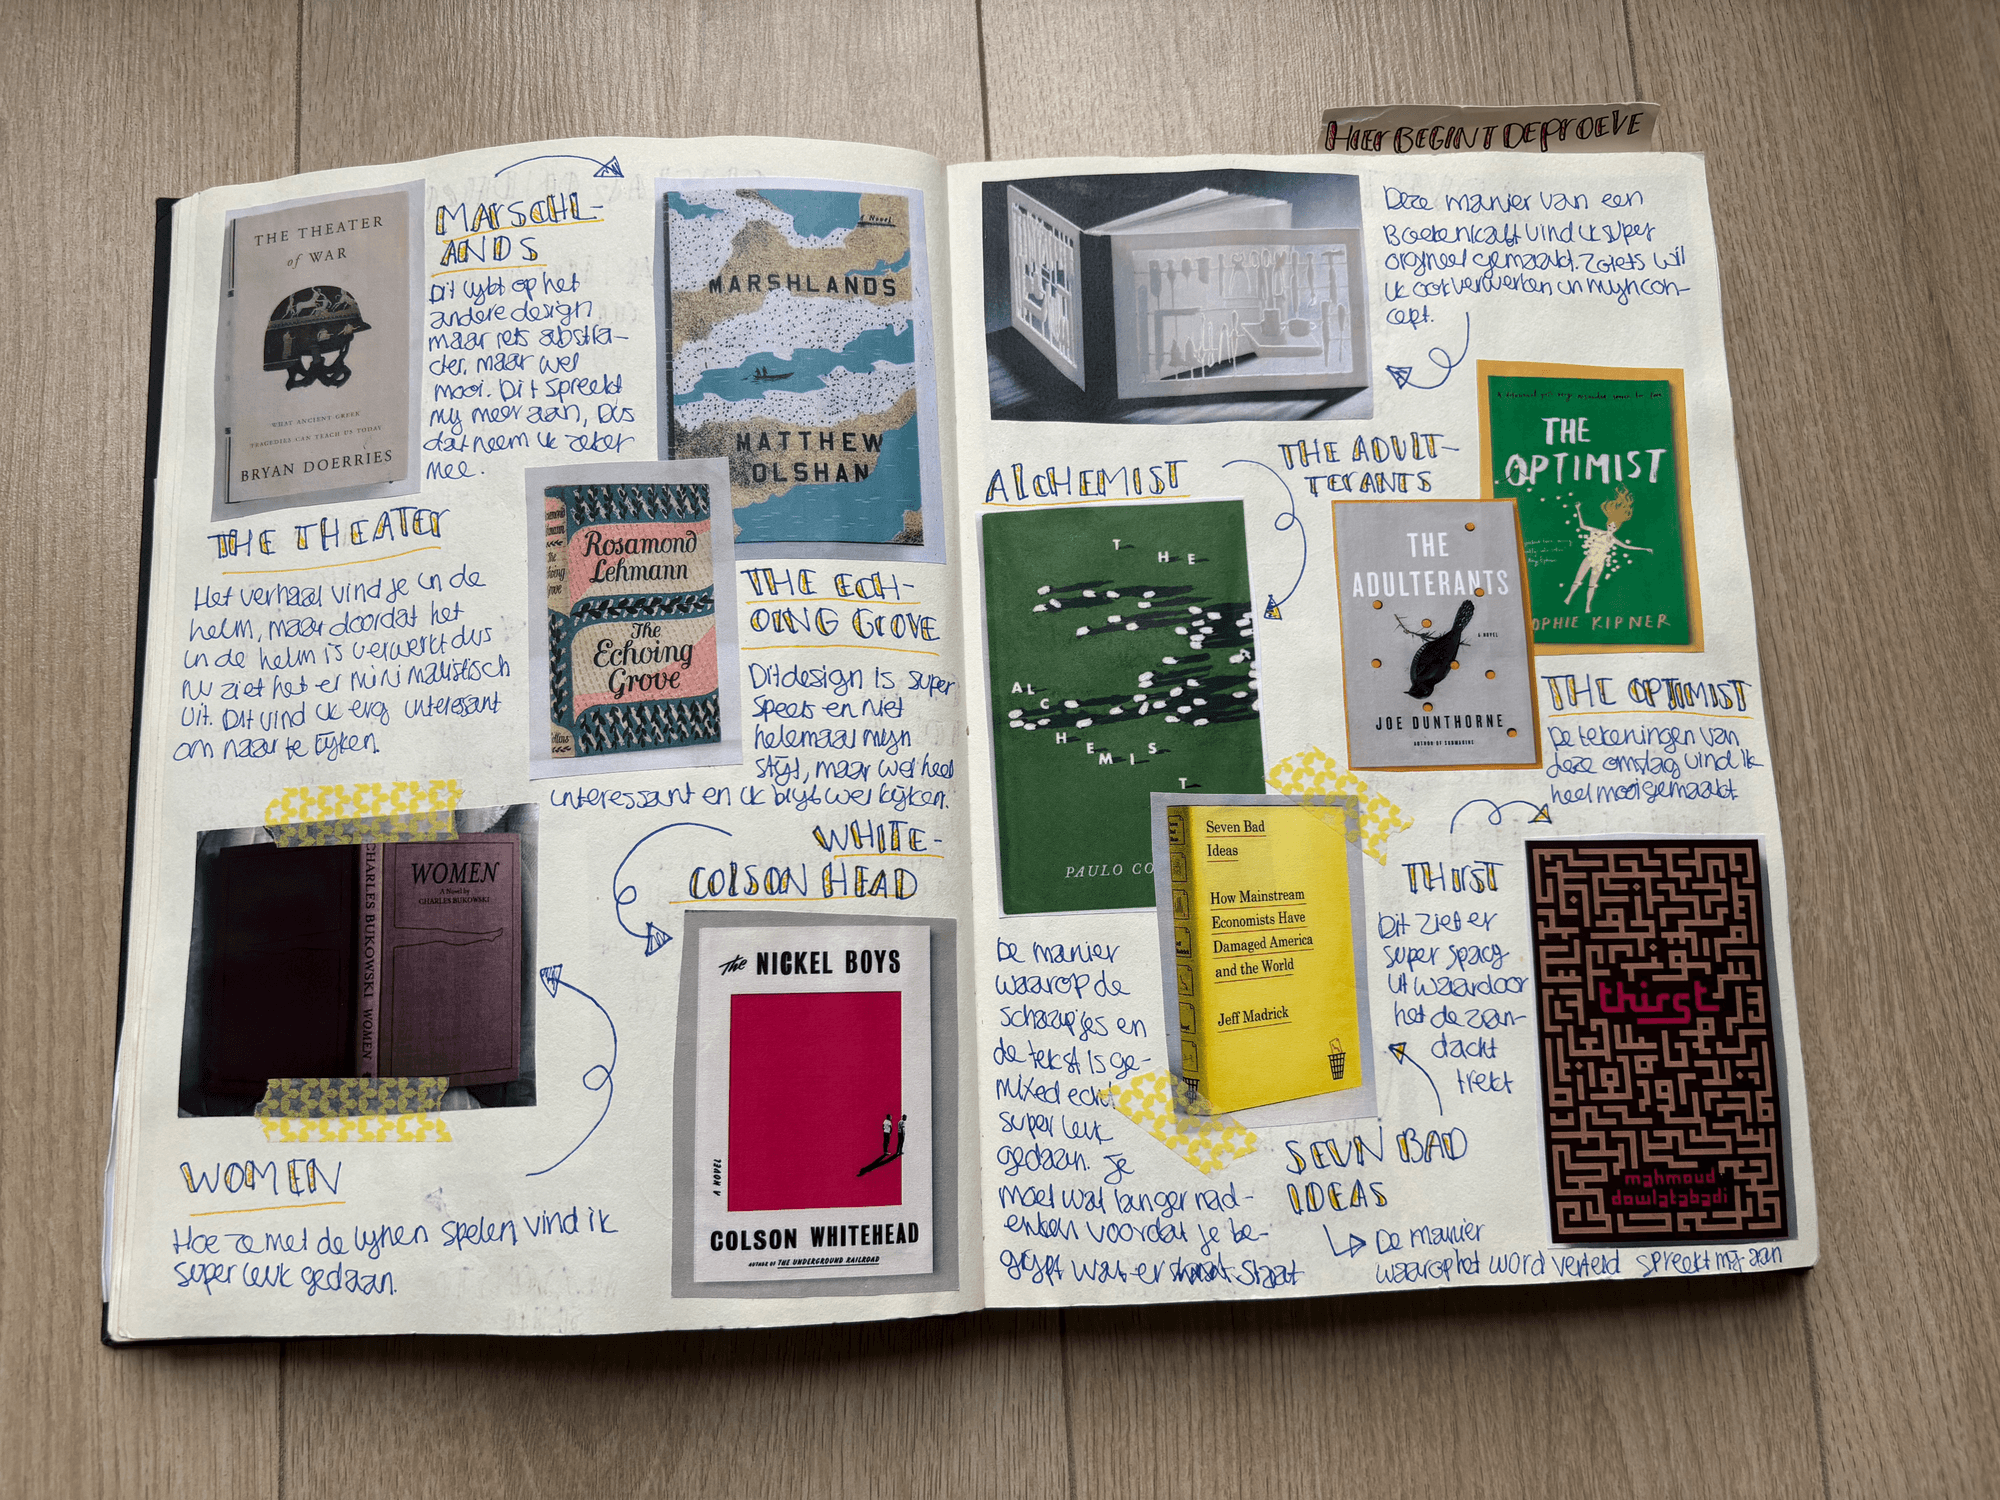 HIER BEGINT DE PROEVE
THE THEATER
of WAR
WHAT ANCIENT GREEK
TRAGEDIES CAN TEACH US TODAY
BRYAN DOERRIES
MARSCHL-
ANDS
Dit lijkt op het
andere design
maar iets abstra-
cter, maar wel
mooi. Dit spreekt
mij meer aan, dus
dat neem ik zeker
mee.
a Novel
MARSHLANDS
MATTHEW
OLSHAN
THE THEATER
Het verhaal vind je in de
helm, maar doordat het
in de helm is verwerkt dus
nu ziet het er minimalistisch
uit. Dit vind ik erg interessant
om naar te kijken.
Rosamond
Lehmann
The
Echoing
Grove
Collins
THE ECH-
OING GROVE
Dit design is super
speels en niet
helemaal mijn
stijl, maar wel heel
interessant en ik blijf wel kijken.
CHARLES BUKOWSKI WOMEN
WOMEN
A Novel by
CHARLES BUKOWSKI
WOMEN
Hoe ze met de lijnen spelen, vind ik
super leuk gedaan.
WHITE-
COLSON HEAD
The NICKEL BOYS
A NOVEL
COLSON WHITEHEAD
AUTHOR OF THE UNDERGROUND RAILROAD
Deze manier van een
Boekenkaft vind ik super
origineel gemaakt. Zoiets wil
ik ook verwerken in mijn con-
cept.
AlCHEMIST
THE
ALCHEMIST
PAULO CO
De manier
waarop de
schaapjes en
de tekst is ge-
mixed echt
super leuk
gedaan. Je
moet wat langer nad-
enken voordat je be-
grijpt wat er staat
THE ADULT-
TERANTS
THE
ADULTERANTS
A NOVEL
JOE DUNTHORNE
AUTHOR OF SUBMARINE
THE
OPTIMIST
OPHIE KIPNER
THE OPTIMIST
De tekeningen van
deze omslag vind ik
heel mooi gemaakt
Seven Bad
Ideas
How Mainstream
Economists Have
Damaged America
and the World
Jeff Madrick
SEVN BAD
IDEAS
De manier
waarop het word verteld spreekt mij aan
THIRST
Dit ziet er
super spacy
uit waardoor
het de aan-
dacht
trekt
thirst
mahmoud
dowlatabadi